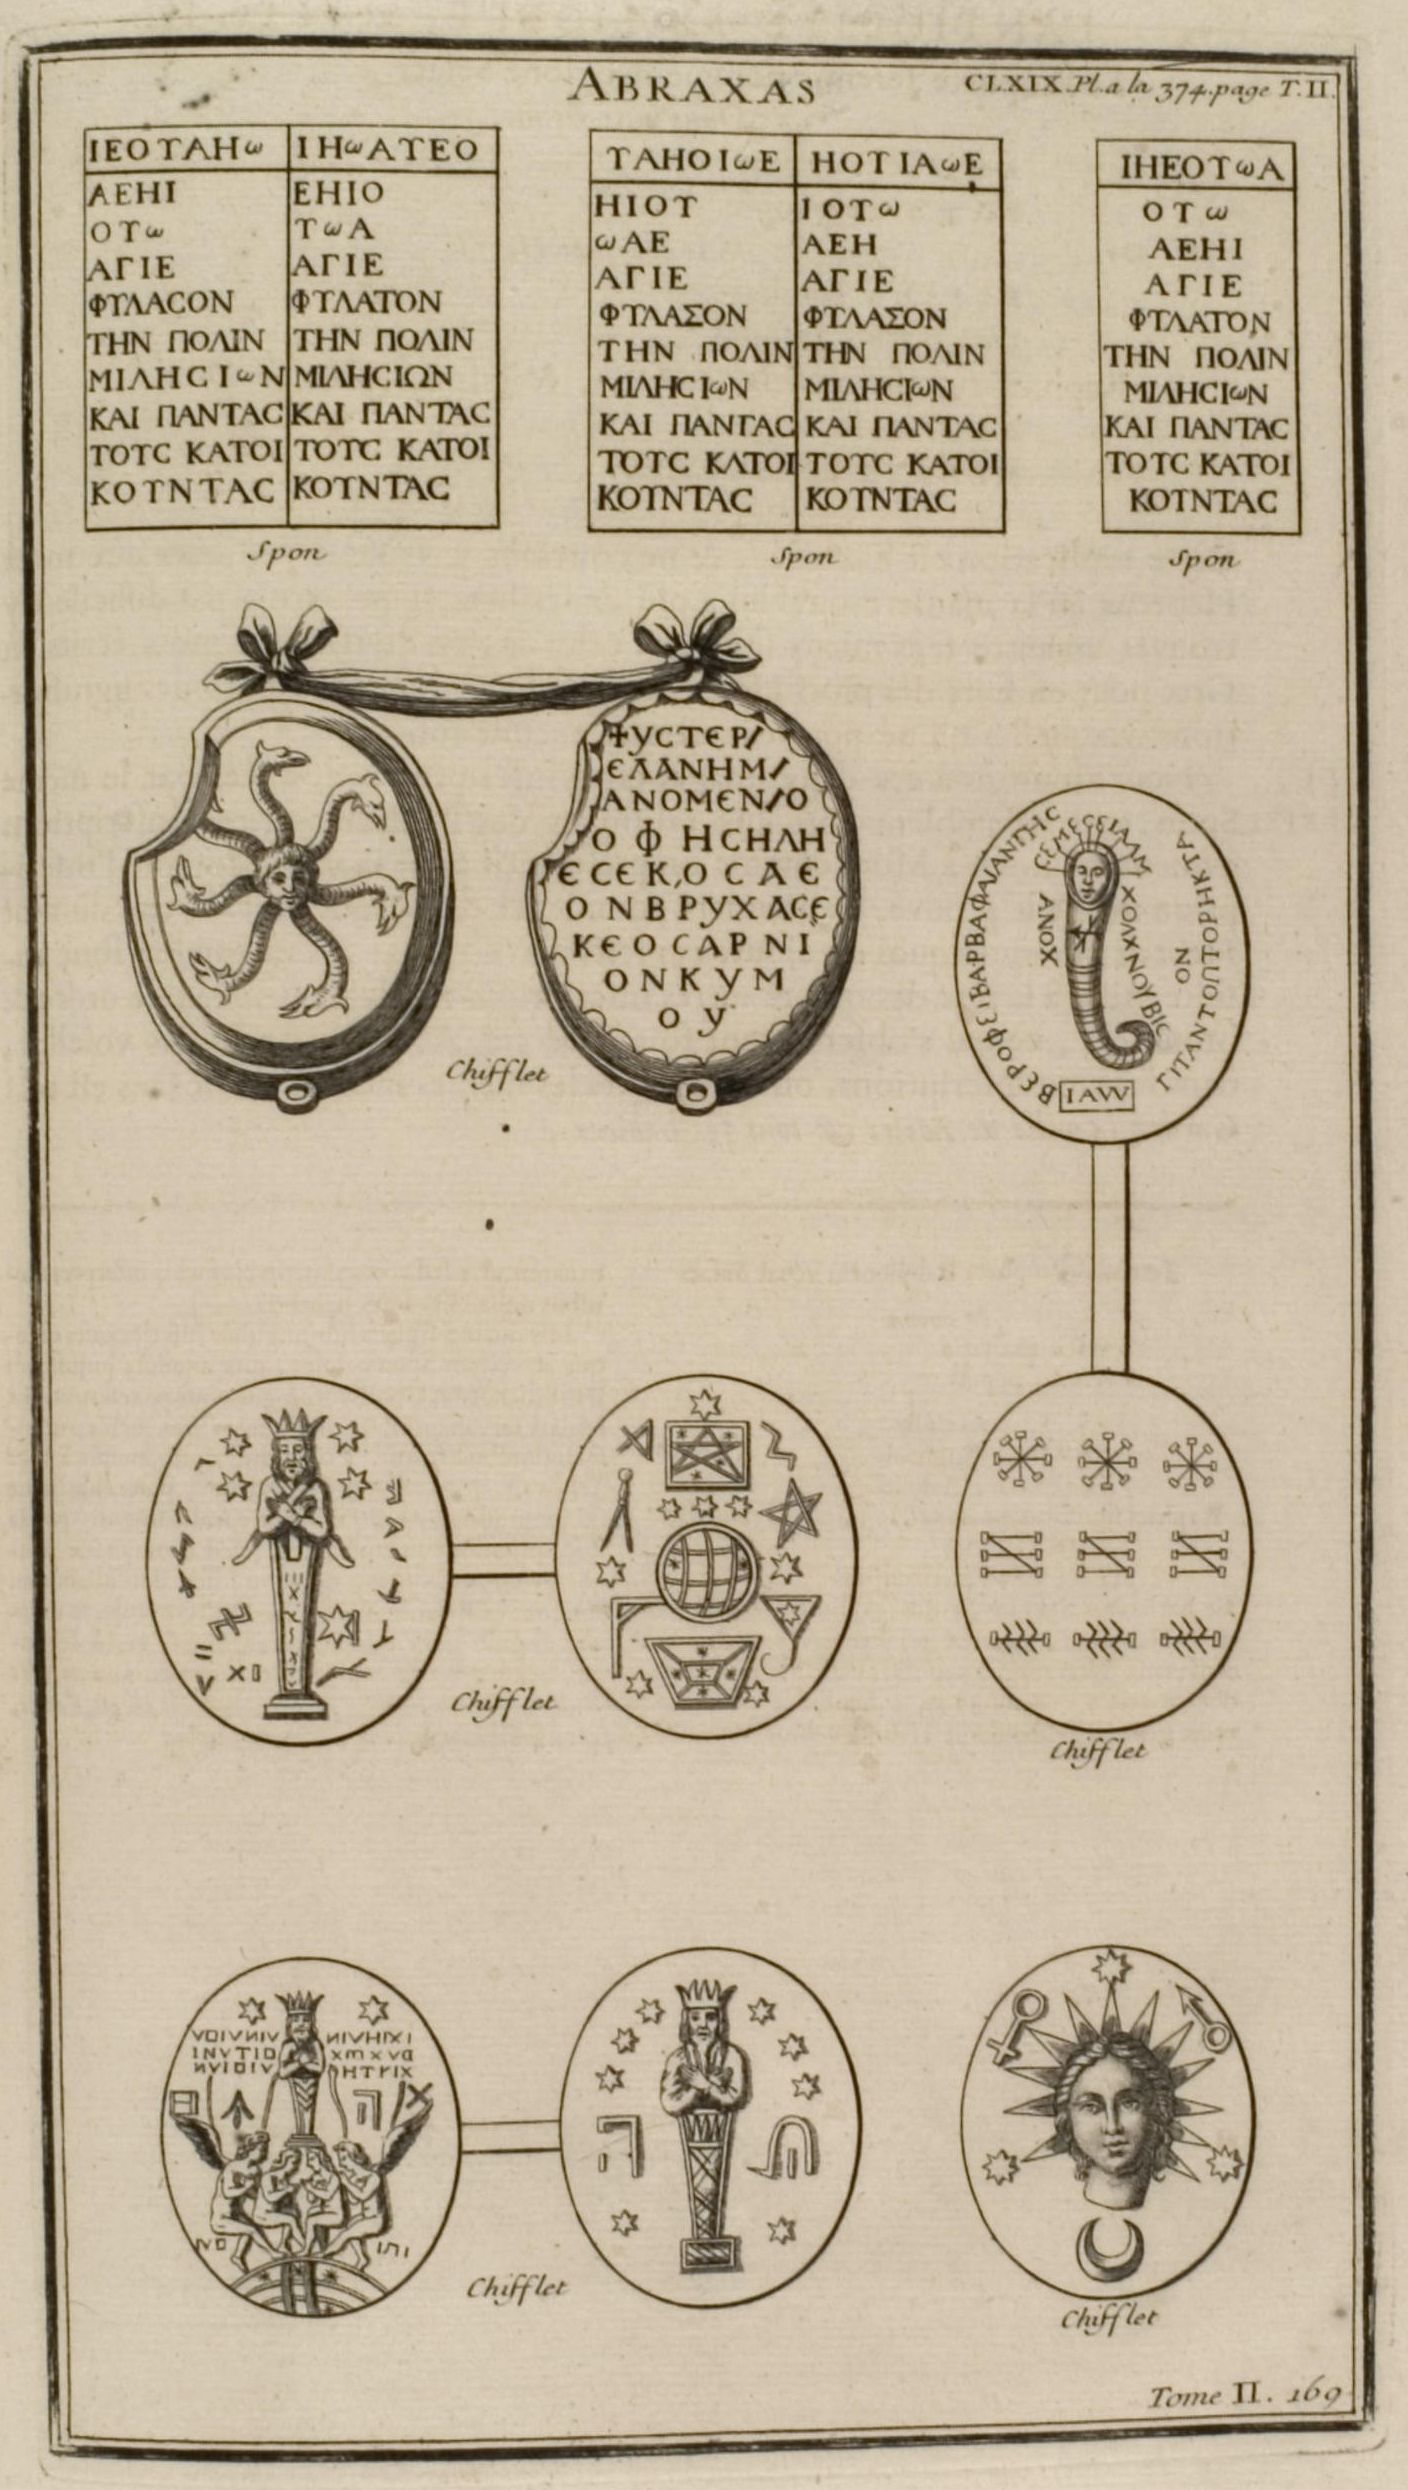 ABRAXAS
CLXIX. Pl. a la 374. page T. II.
ΙΕΟΤΑΗω
ΑΕΗΙ
ΟΤω
ΑΓΙΕ
ΦΤΛΑCΟΝ
ΤΗΝ ΠΟΛΙΝ
ΜΙΛΗCΙωΝ
ΚΑΙ ΠΑΝΤΑC
ΤΟΤC ΚΑΤΟΙ
ΚΟΤΝΤΑC
ΙΗωΑΤΕΟ
ΕΗΙΟ
ΤωΑ
ΑΓΙΕ
ΦΤΛΑΤΟΝ
ΤΗΝ ΠΟΛΙΝ
ΜΙΛΗCΙΩΝ
ΚΑΙ ΠΑΝΤΑC
ΤΟΤC ΚΑΤΟΙ
ΚΟΤΝΤΑC
Spon
ΤΑΗΟΙωΕ
ΗΙΟΤ
ωΑΕ
ΑΓΙΕ
ΦΤΛΑΣΟΝ
ΤΗΝ ΠΟΛΙΝ
ΜΙΛΗCΙωΝ
ΚΑΙ ΠΑΝΓΑC
ΤΟΤC ΚΛΤΟΙ
ΚΟΤΝΤΑC
ΗΟΤΙΑωΕ
ΙΟΤω
ΑΕΗ
ΑΓΙΕ
ΦΤΛΑΣΟΝ
ΤΗΝ ΠΟΛΙΝ
ΜΙΛΗCΙωΝ
ΚΑΙ ΠΑΝΤΑC
ΤΟΤC ΚΑΤΟΙ
ΚΟΤΝΤΑC
Spon
ΙΗΕΟΤωΑ
ΟΤω
ΑΕΗΙ
ΑΓΙΕ
ΦΤΛΑΤΟΝ
ΤΗΝ ΠΟΛΙΝ
ΜΙΛΗCΙωΝ
ΚΑΙ ΠΑΝΤΑC
ΤΟΤC ΚΑΤΟΙ
ΚΟΤΝΤΑC
Spon
ΕΛΑΝΗΜ/
ΑΝΟΜΕΝ/Ο
Ο Φ ΗCΗΛΗ
ЄCЄΚ,ΟCΑЄ
ΟΝΒΡΥΧΑCЄ
ΚЄΟCΑΡΝΙ
ΟΝΚΥΜ
ΟΥ
Chifflet
ΑΝΟΧ
ΧΟΛΧΝΟΥΒΙC
ΟΝ
ΓΙΠΑΝΤΟΠΤΟΡΗΚΤΑ
ΙΑW
Chifflet
Chifflet
Chifflet
Chifflet
Tome II. 169